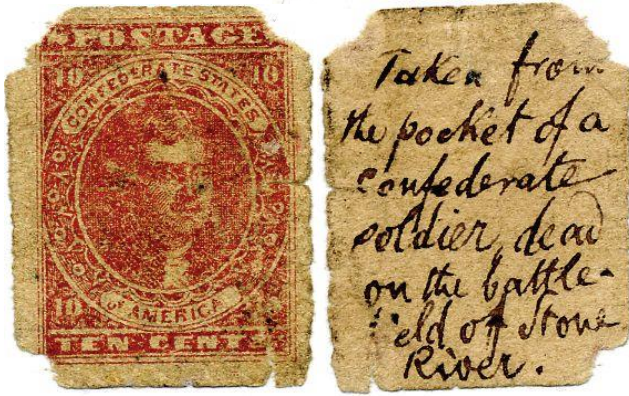 POSTAGE
10 10
CONFEDERATE STATES
OF AMERICA
10
TEN CENTS
Taken from
the pocket of a
confederate
soldier, dead
on the battle-
ield of Stone
River.